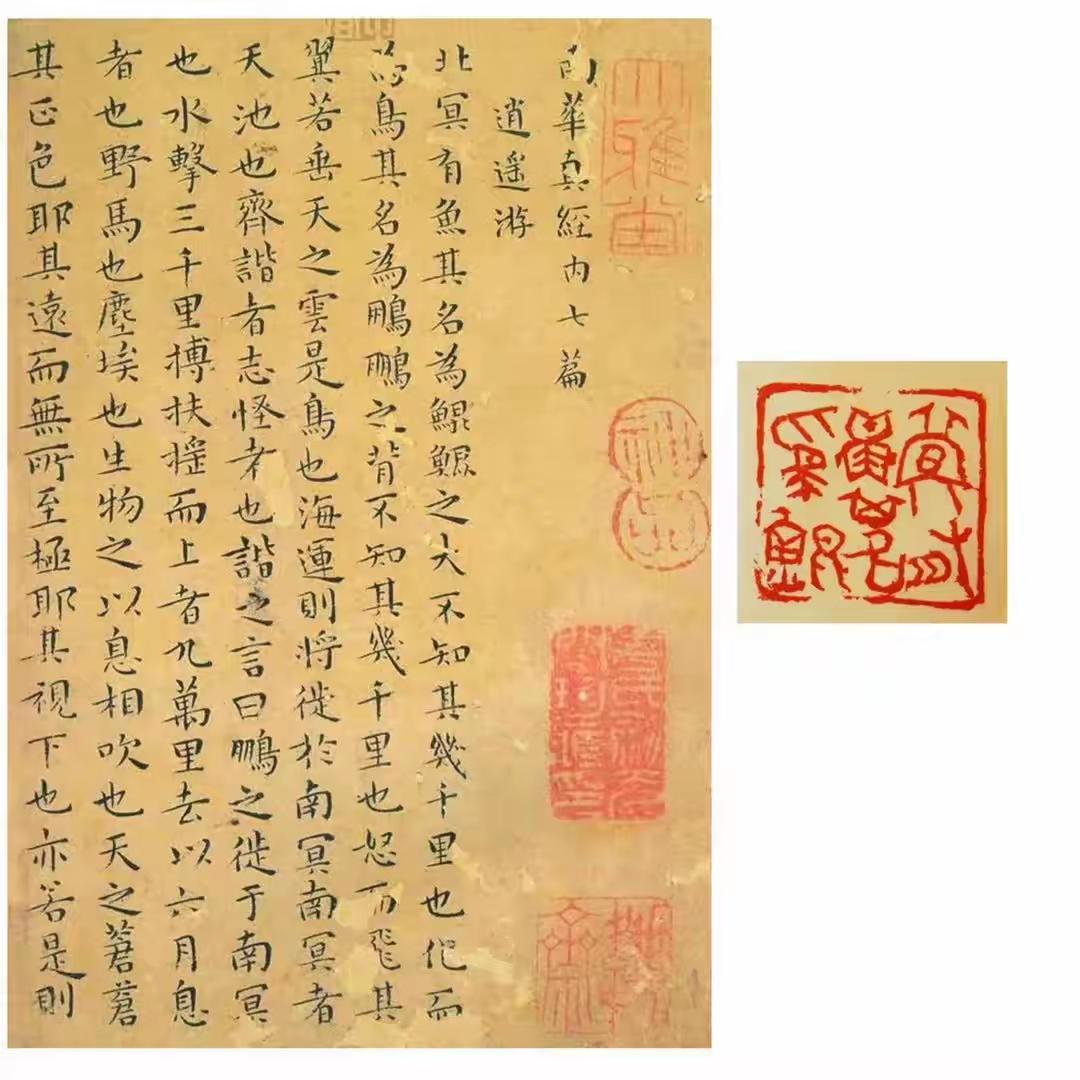 南華真經内七篇
逍遥游
北冥有魚其名為鯤鯤之大不知其幾千里也化而
為鳥其名為鵬鵬之背不知其幾千里也怒而飛其
翼若垂天之雲是鳥也海運則將徙於南冥南冥者
天池也齊諧者志怪者也諧之言曰鵬之徙于南冥
也水擊三千里摶扶摇而上者九萬里去以六月息
者也野馬也塵埃也生物之以息相吹也天之蒼蒼
其正色耶其遠而無所至極耶其視下也亦若是則